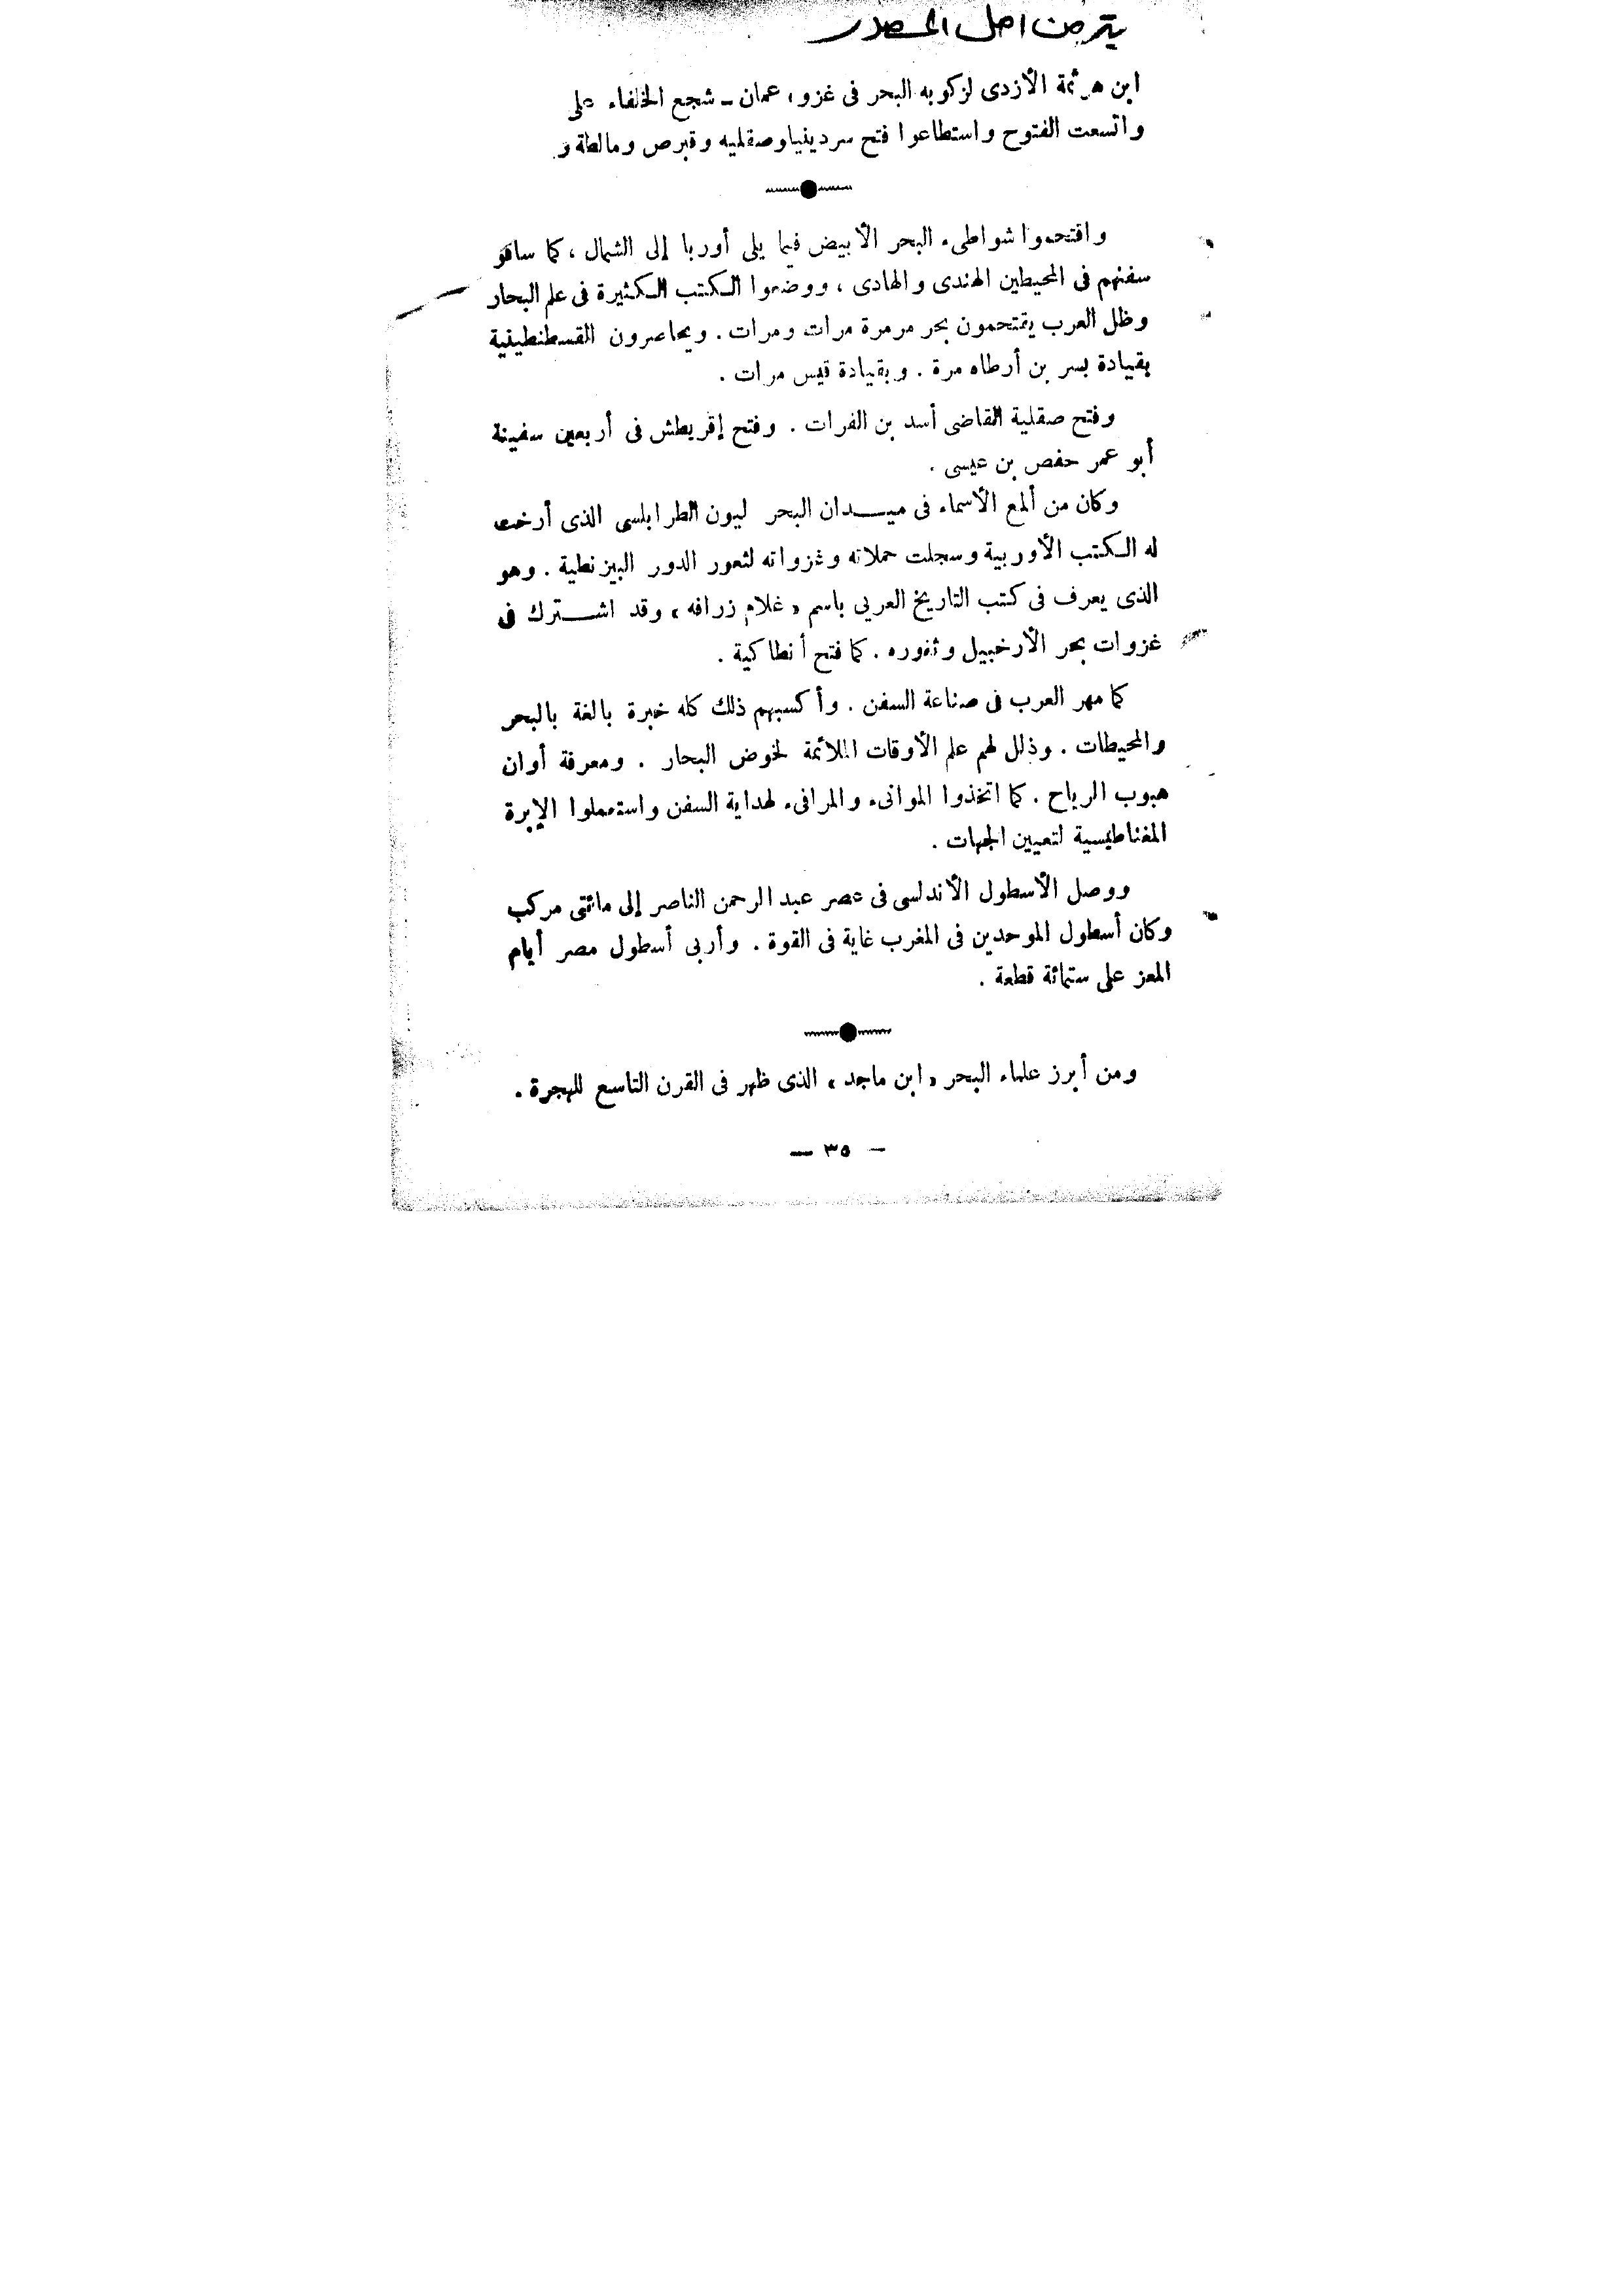 بتر من أصل المصدر
ابن هرثمة الأزدى لركوبه البحر فى غزو، عمان ــ شجع الخلفاء على
واتسعت الفتوح واستطاعوا فتح سردينيا وصقليه وقبرص ومالطة و
واقتحموا شواطىء البحر الأبيض فيما يلى أوربا إلى الشمال ، كما ساقو
سفنهم فى المحيطين الهندى والهادى ، ووضعوا الكتب الكثيرة فى علم البحار
وظل العرب يقتحمون بحر مرمرة مرات ومرات . ويحاصرون القسطنطينية
بقيادة بسر بن أرطاه مرة . وبقيادة قيس مرات .
وفتح صقلية القاضى أسد بن الفرات . وفتح إقريطش فى أربعين سفينة
أبو عمر حفص بن عيسى .
وكان من ألمع الأسماء فى ميــدان البحر ليون الطرابلسى الذى أرخت
له الكتب الأوربية وسجلت حملاته وغزواته لثغور الدور البيزنطية . وهو
الذى يعرف فى كتب التاريخ العربى باسم « غلام زرافه » وقد اشــترك فى
غزوات بحر الأرخبيل وثغوره . كما فتح أنطاكية .
كما مهر العرب فى صناعة السفن . وأكسبهم ذلك كله خبرة بالغة بالبحر
والمحيطات . وذلل لهم علم الأوقات الملائمة لخوض البحار . ومعرفة أوان
هبوب الرياح . كما اتخذوا الموانىء والمرافىء لهداية السفن واستعملوا الإبرة
المغناطيسية لتعيين الجهات .
ووصل الأسطول الأندلسى فى عصر عبد الرحمن الناصر إلى مائتى مركب
وكان أسطول الموحدين فى المغرب غاية فى القوة . وأربى أسطول مصر أيام
المعز على ستمائة قطعة .
ومن أبرز علماء البحر « ابن ماجد » الذى ظهر فى القرن التاسع للهجرة .
— ٣٥ —